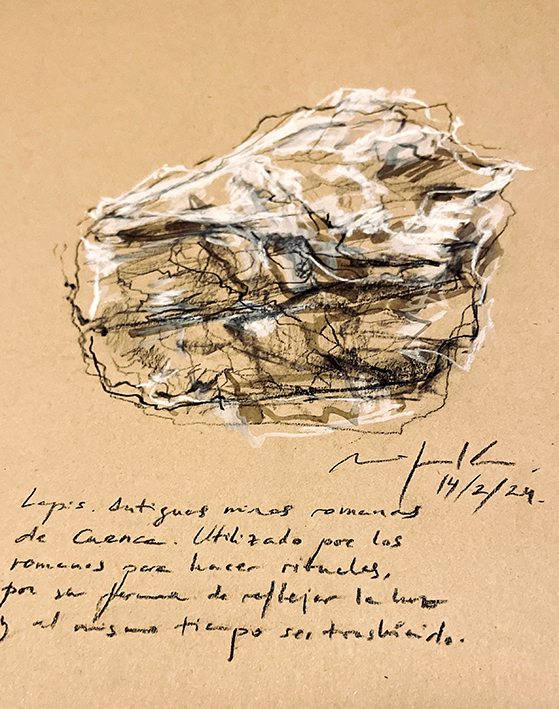 14/2/24.
Lapis. Antiguas minas romanas
de Cuenca. Utilizado por los
romanos para hacer rituales,
por su forma de reflejar la luz
y al mismo tiempo ser traslúcido.